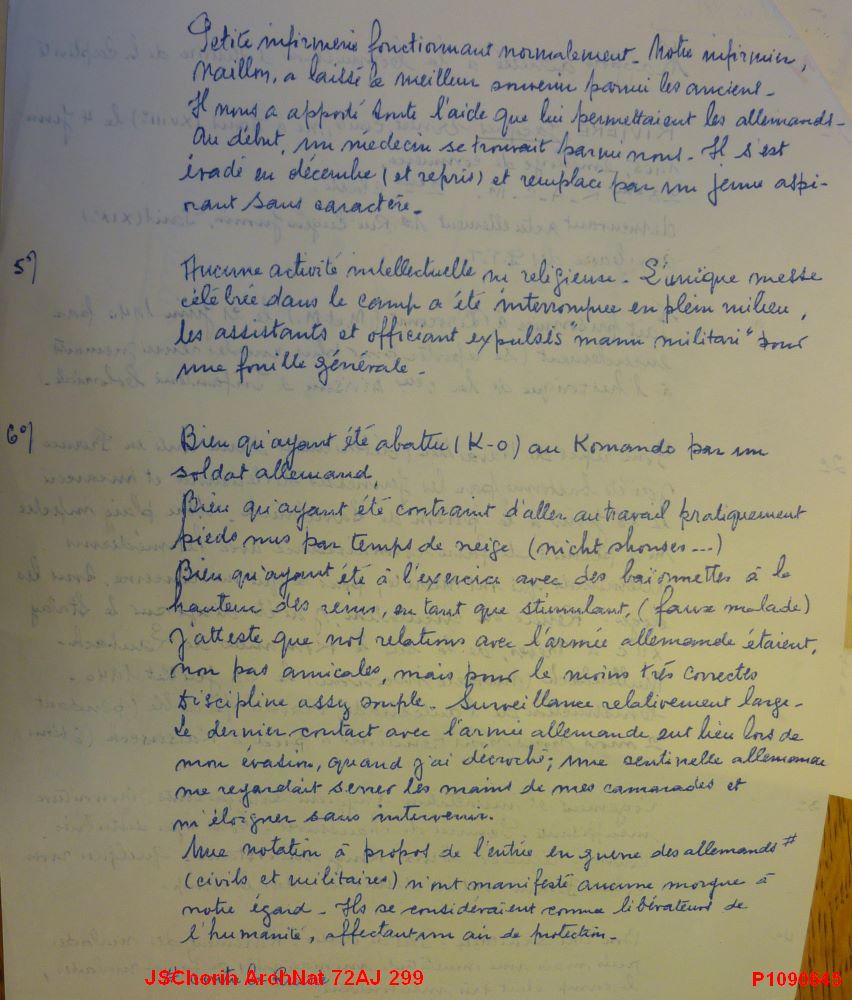 Petite infirmerie fonctionnant normalement - Notre infirmier,
Naillon, a laissé le meilleur souvenir parmi les anciens -
Il nous a apporté toute l'aide que lui permettaient les allemands -
Au début, un medecin se trouvait parmi nous - Il s'est
évadé en décembre (et repris) et remplacé par un jeune aspi-
rant sans caractère -
5°/ Aucune activité intellectuelle ni religieuse - L'unique messe
célébrée dans le camp a été interrompue en plein milieu,
les assistants et officiant expulsés "manu militari" pour
une fouille générale -
6°/ Bien qu'ayant été abattu (K-O) au Komando par un
soldat allemand,
Bien qu'ayant été contraint d'aller au travail pratiquement
pieds nus par temps de neige (nicht shouses ...)
Bien qu'ayant été à l'exercice avec des baïonnettes à la
hauteur des reins, en tant que stimulant, (faux malade)
j'atteste que nos relations avec l'armée allemande étaient,
non pas amicales, mais pour le moins très correctes
Discipline assez souple - Surveillance relativement large -
Le dernier contact avec l'armée allemande eut lieu lors de
mon évasion, quand j'ai décroché ; une sentinelle allemande
me regardait serrer les mains de mes camarades et
m'éloigner sans intervenir.
Une notation à propos de l'entrée en guerre des allemands #
(civils et militaires) n'ont manifesté aucune morgue à
notre égard - Ils se considéraient comme libérateurs de
l'humanité, affectant un air de protection -
# contre la Russie
JSChorin ArchNat 72AJ 299
P1090645